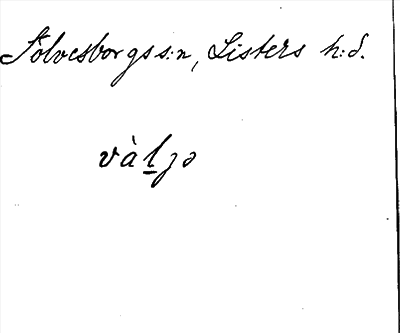 Sölvesborgs s:n, Listers h:d.
vàl̲ʒə